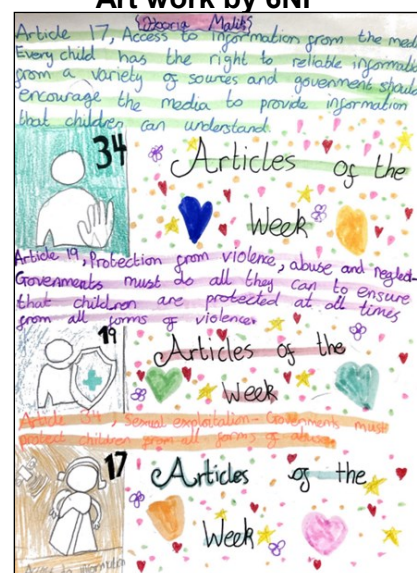 Art work by 6NP
Dooria Malik
Article 17, Access to information from the med
Every child has the right to reliable informati
from a variety of sources and govenment shoul
encourage the media to provide information
that children can understand.
34
Articles of the
Week
Article 19, Protection from violence, abuse and neglect-
Govenments must do all they can to ensure
that children are protected at all times
from all forms of violence.
19
Articles of the
Week
Article 34, Sexual exploitation- Govenments must
protect children from all forms of abuse.
17
Articles of the
Week
Access to information